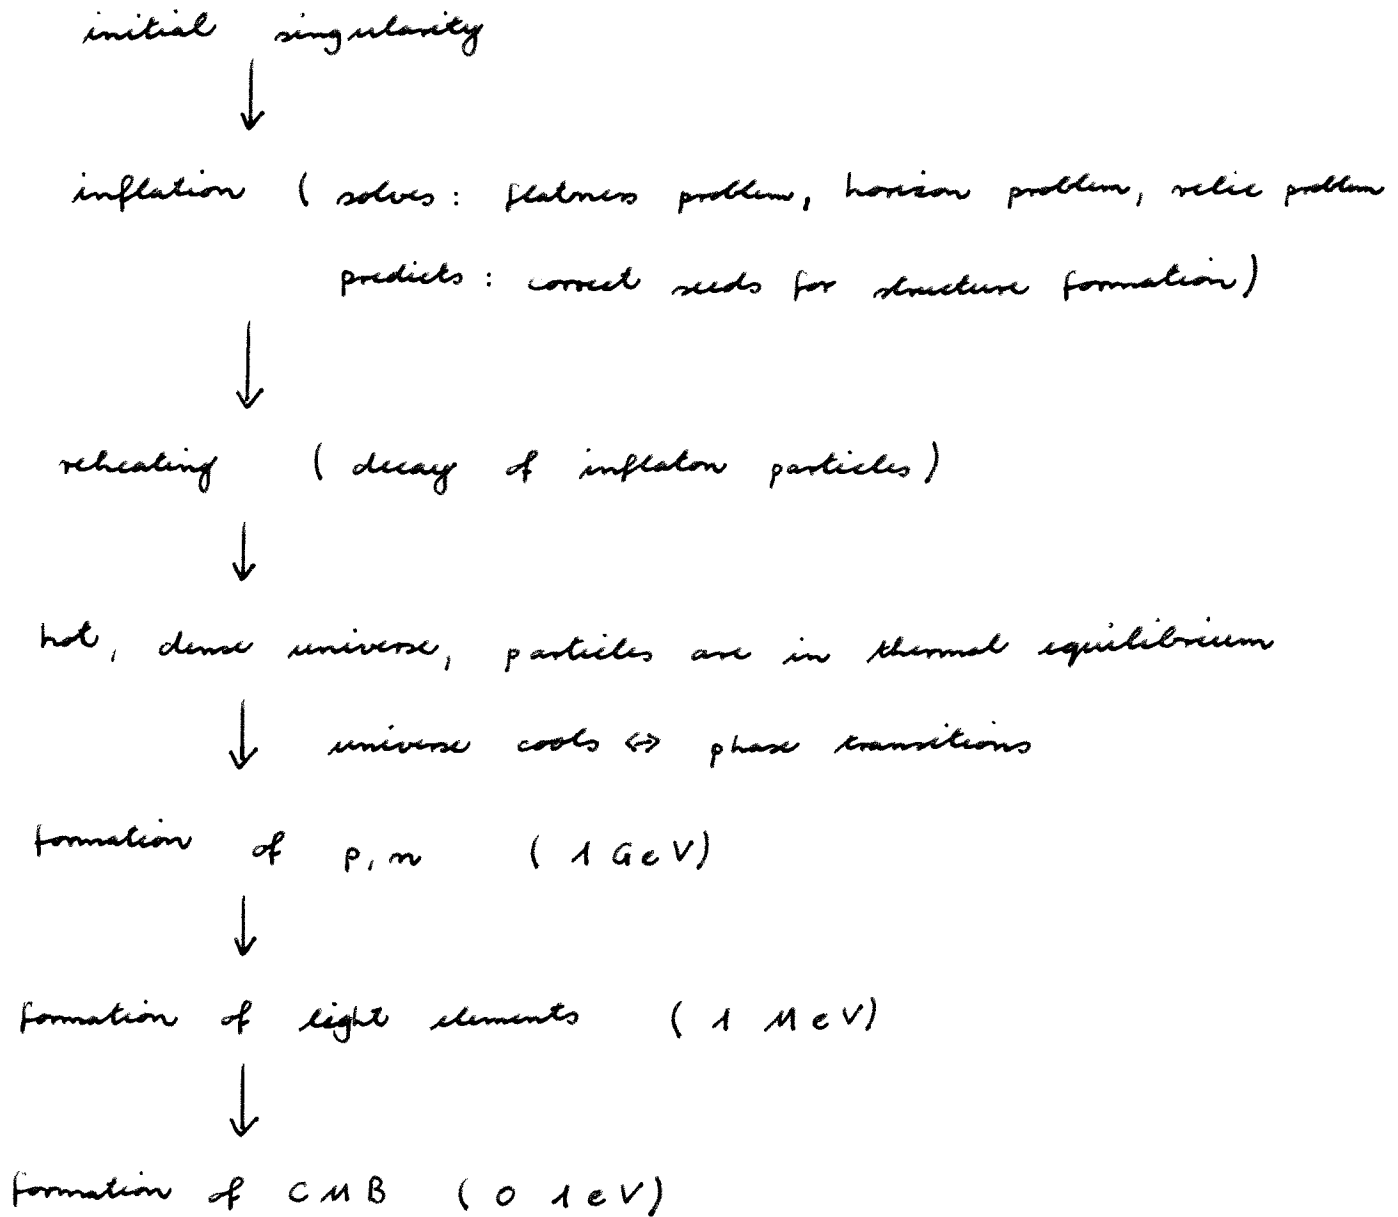 initial singularity
↓
inflation ( solves : flatness problem, horizon problem, relic problem
predicts : correct seeds for structure formation)
↓
reheating ( decay of inflaton particles )
↓
hot, dense universe, particles are in thermal equilibrium
↓ universe cools <-> phase transitions
formation of p, n ( 1 GeV)
↓
formation of light elements ( 1 MeV)
↓
formation of CMB ( 0 1 eV)